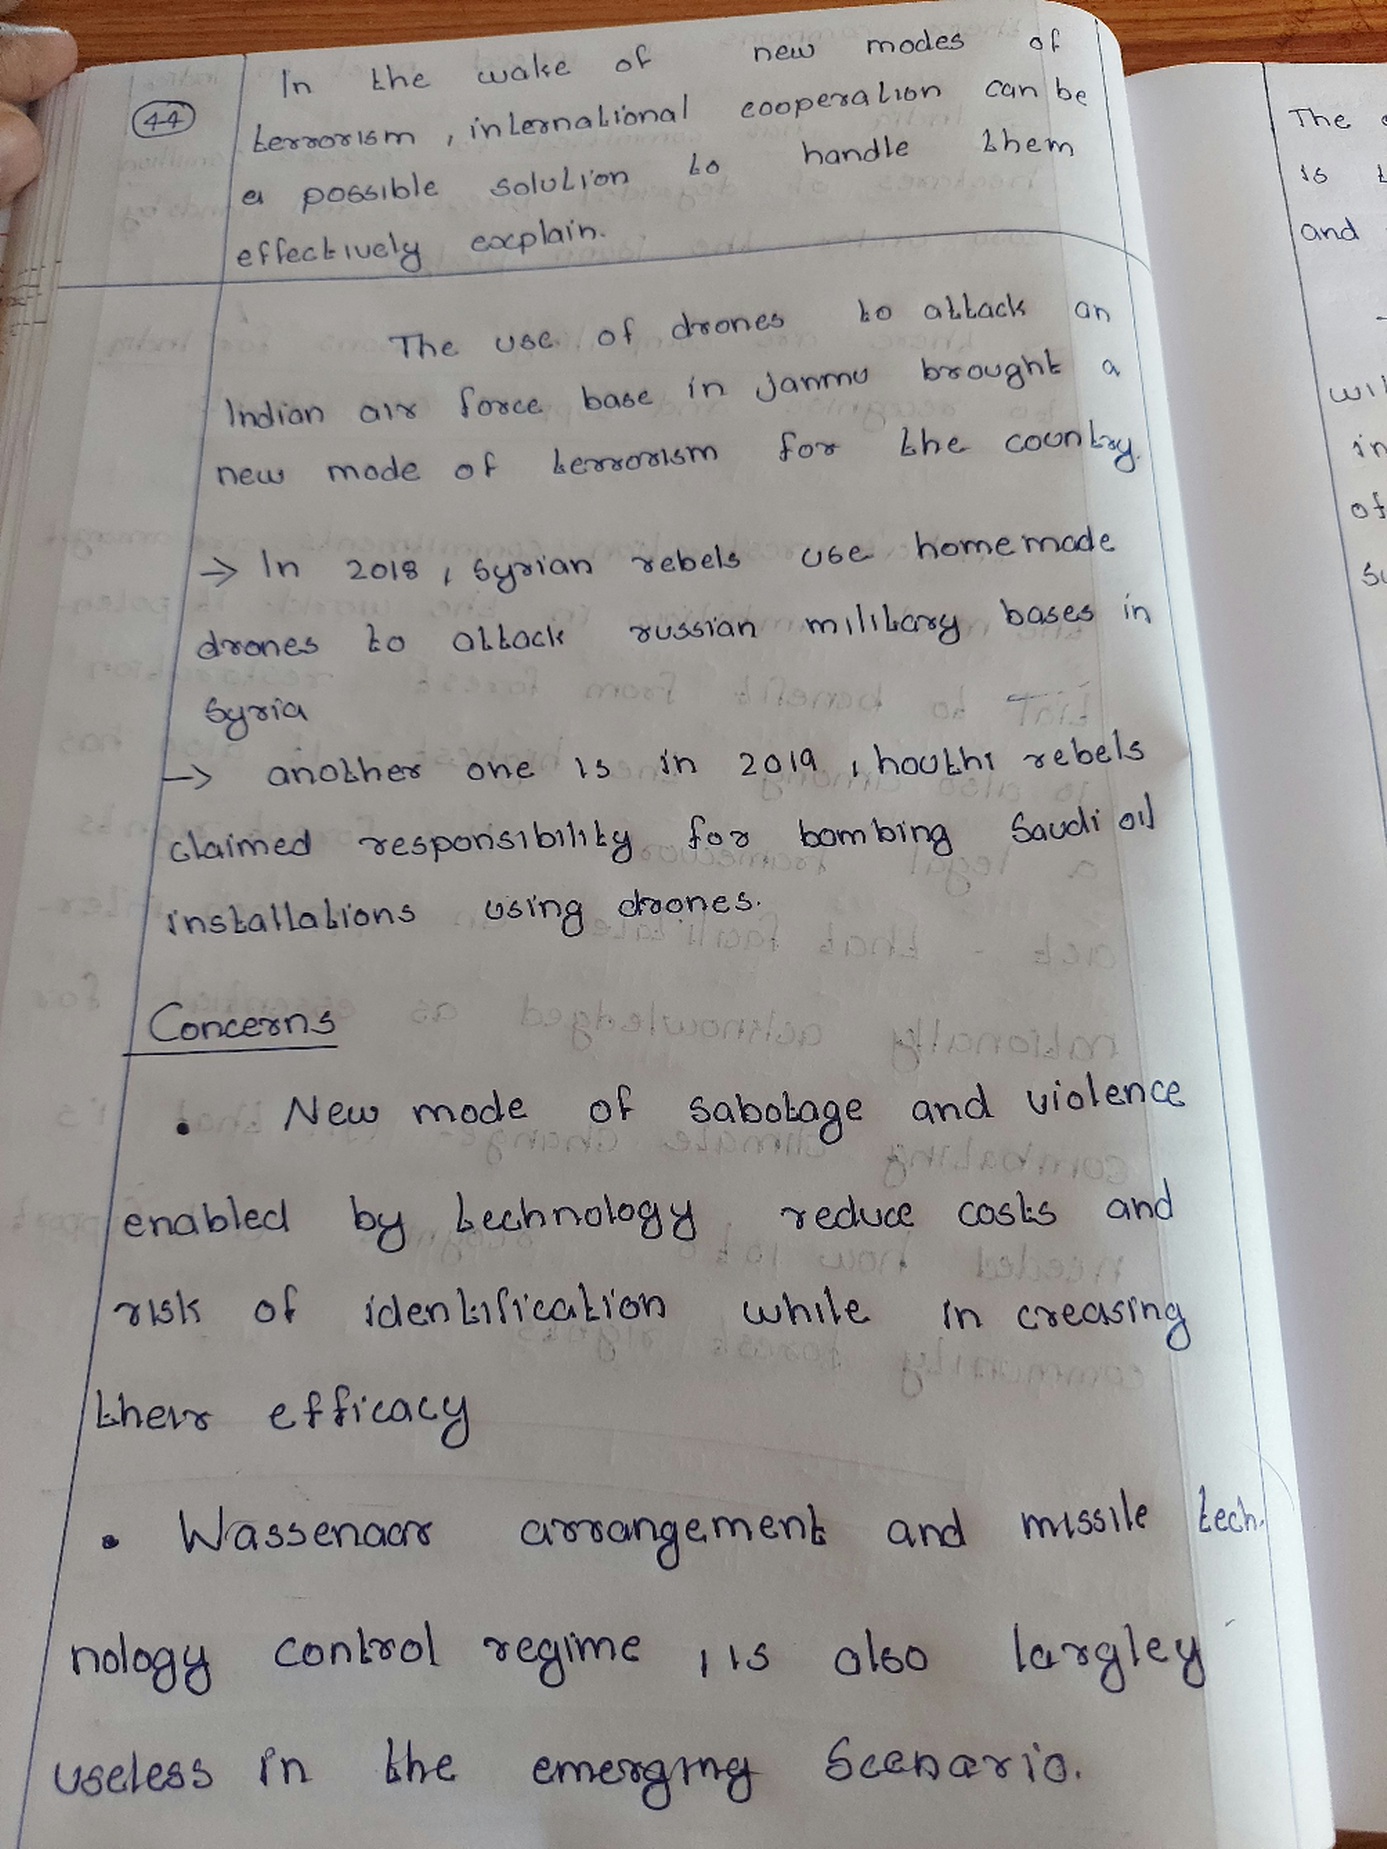 44
In the wake of new modes of
terrorism, international cooperation can be
a possible solution to handle them
effectively explain.
The use of drones to attack an
Indian air force base in Janmu brought a
new mode of terrorism for the country.
→ In 2018, Syrian rebels use homemade
drones to attack russian military bases in
Syria
→ another one is in 2019, houthi rebels
claimed responsibility for bombing Saudi oil
installations using drones.
Concerns
• New mode of sabotage and violence
enabled by technology reduce costs and
risk of identification while in creasing
their efficacy
• Wassenaar arrangement and missile tech.
nology control regime, is also largley
useless in the emerging Scenario.
The
is
and
wil
in
of